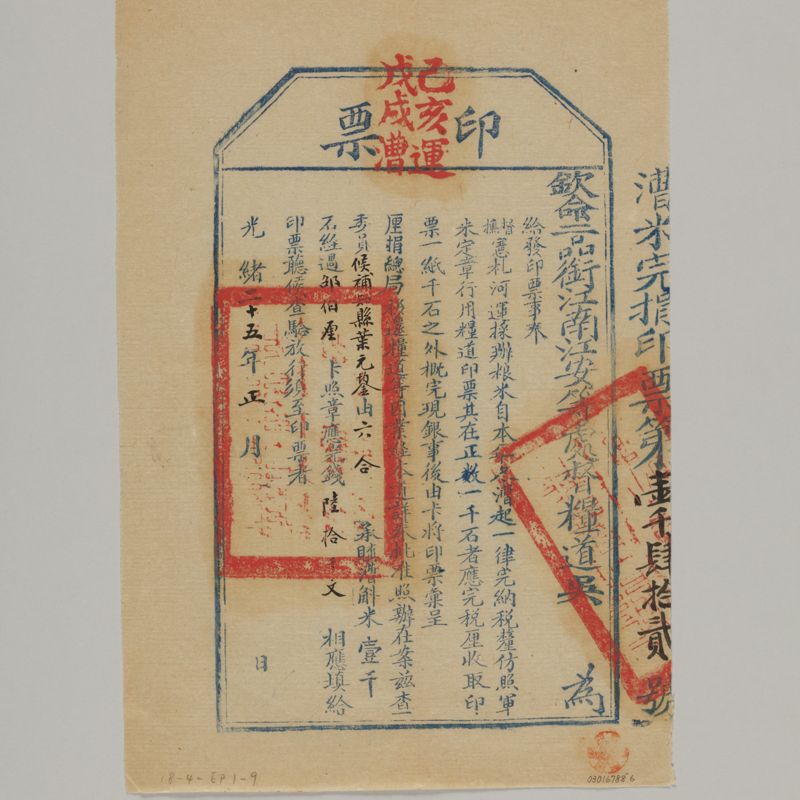 漕米完捐印票第壹千肆拾貳號
印票
己亥運
戊戌漕
欽命二品銜江南江安等處督糧道吳 為
給發印票事奉
督撫憲札河運採辦粮米自本起一律完納税釐仿照軍
米定章行用糧道印票其在正數一千石者應完税厘收取印
票一紙千石之外概完現銀事後由卡將印票彙呈
厘捐總局移還糧道等因業經本道詳奉批准照辦在案兹查
委員候補知縣葉元鋆由六合 承財米壹千
石經過邵伯厘卡照章應完錢陸拾千文 相應填給
印票聽候查驗放行須至印票者
光緒二十五年正月 日
18-4-EP1-9
03016788 6